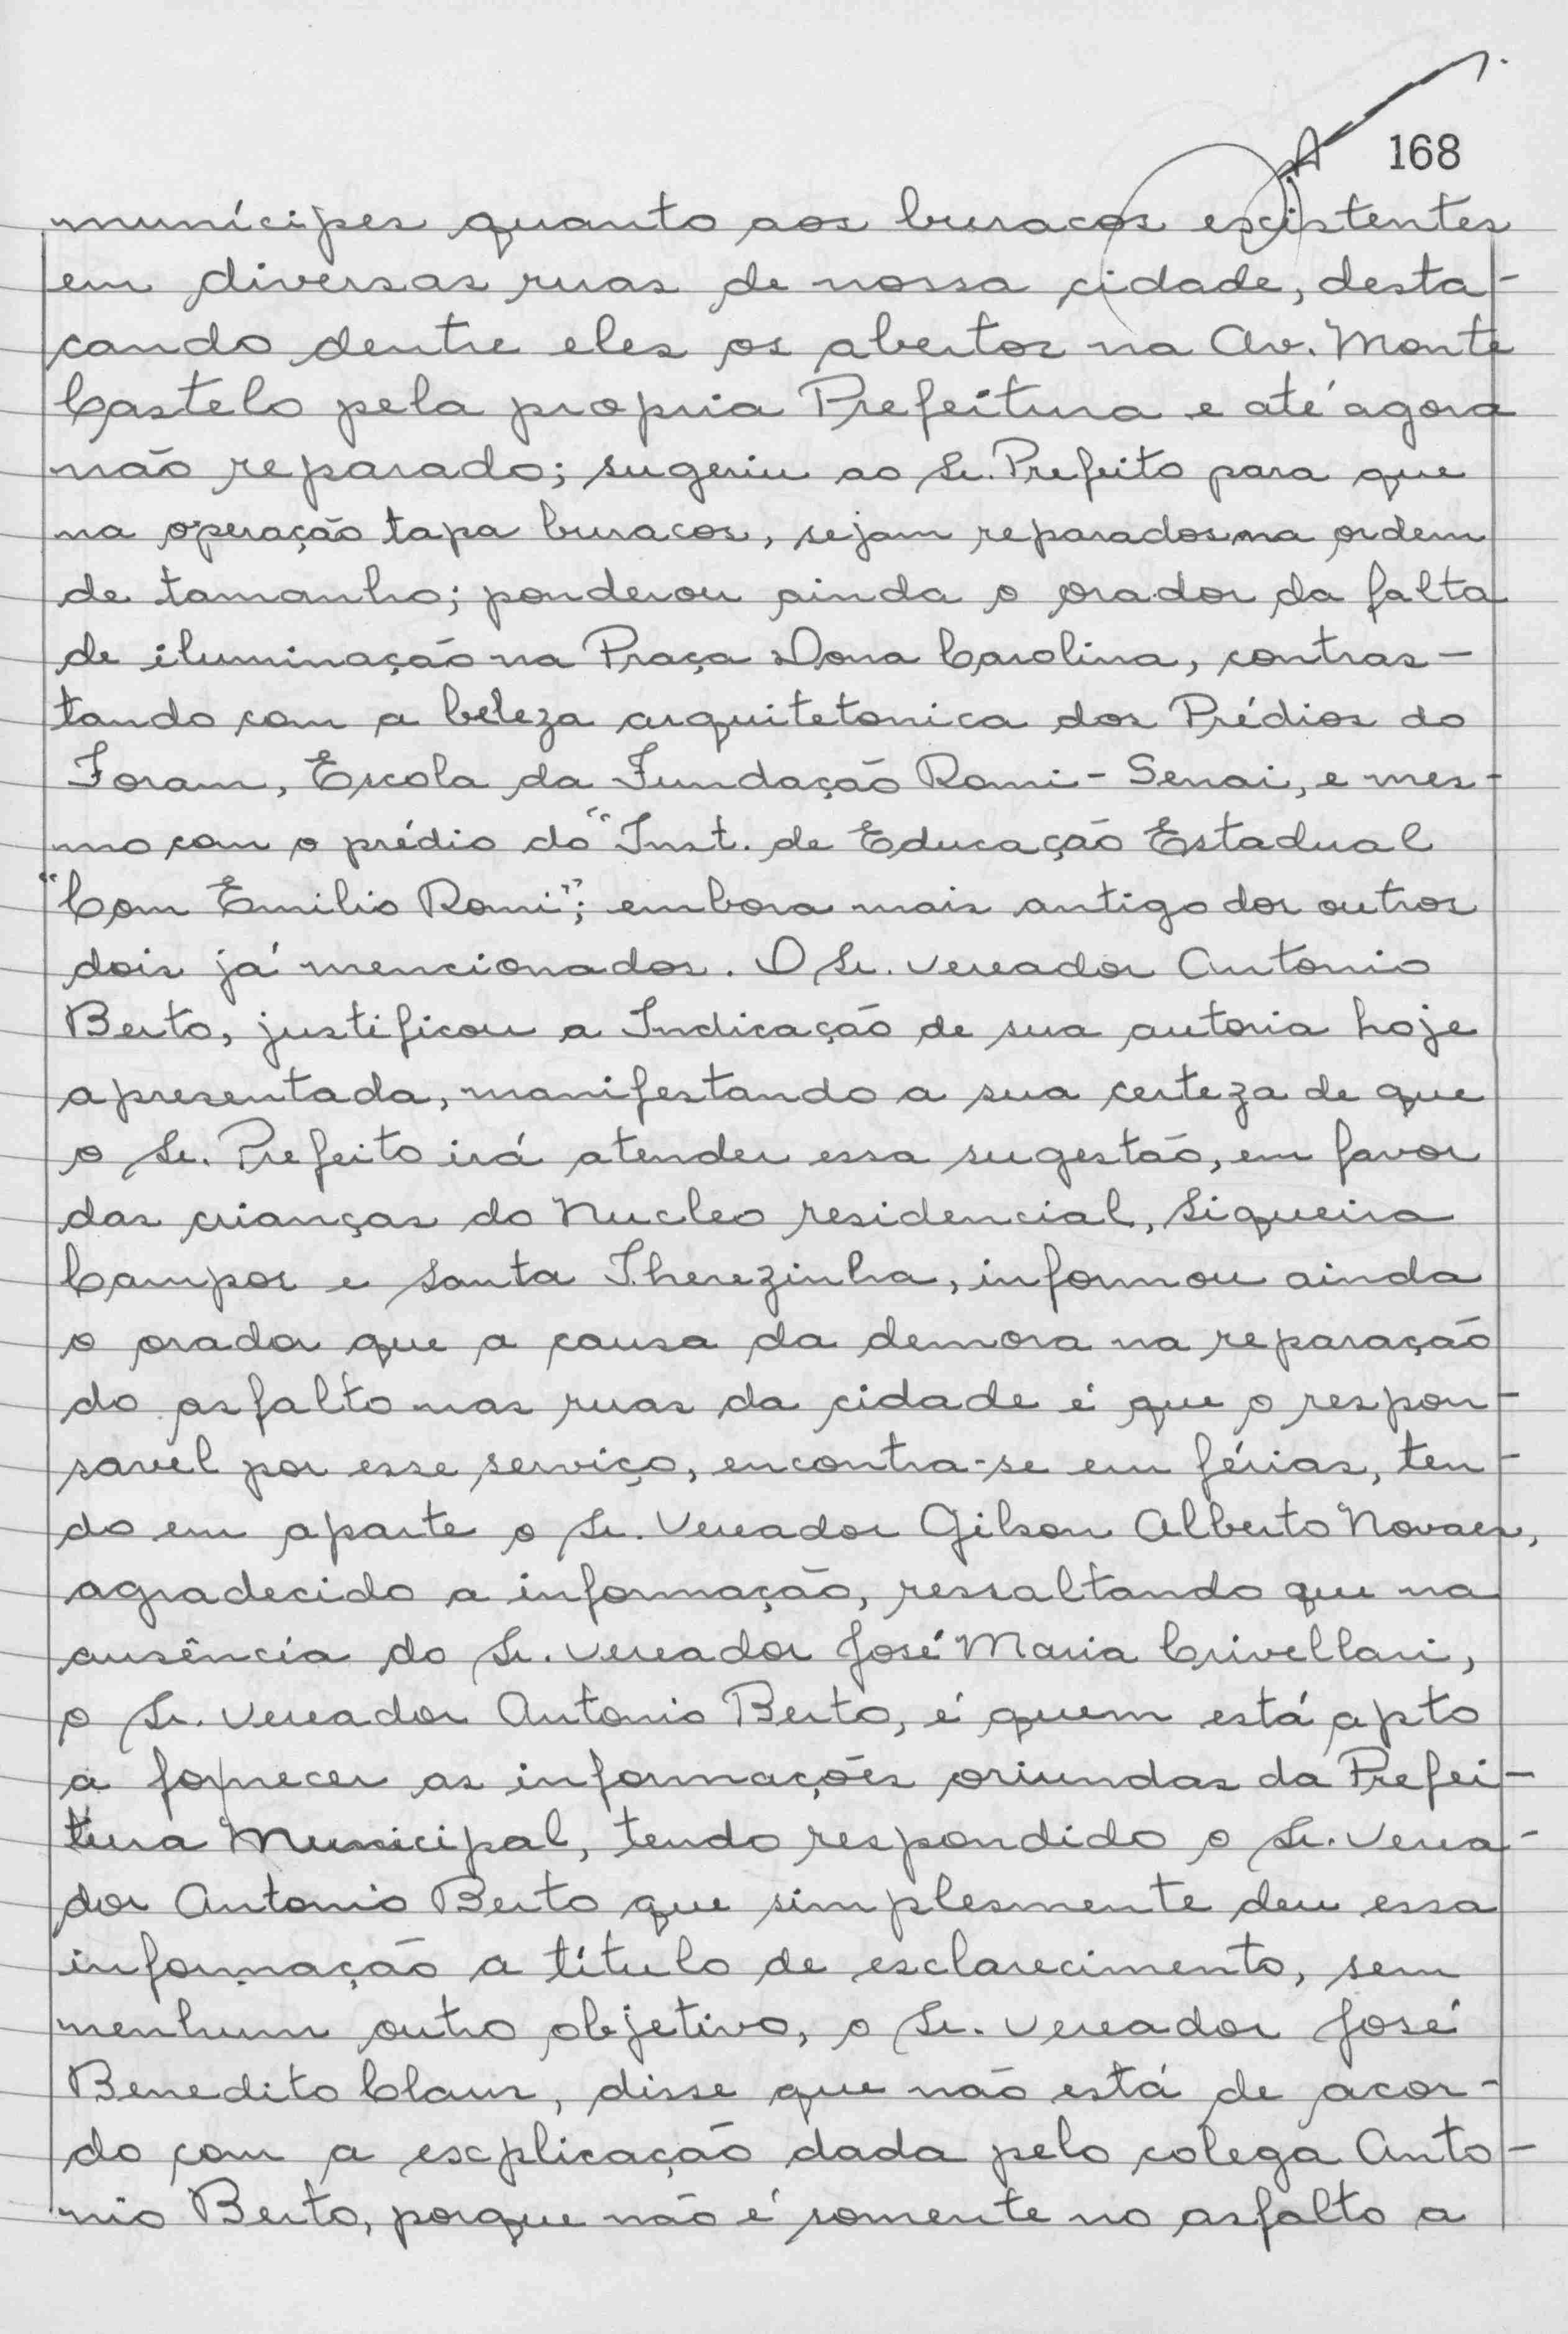 168
munícipes quanto aos buracos existentes
em diversas ruas de nossa cidade, desta-
cando dentre eles os abertos na Av. Monte
Castelo pela propria Prefeitura e até agora
não reparado; sugeriu ao Sr. Prefeito para que
na operação tapa buracos, sejam reparados na ordem
de tamanho; ponderou ainda o orador da falta
de iluminação na Praça Dona Carolina, contras-
tando com a beleza arquitetonica dos Prédios do
Foram, Escola da Fundação Romi - Senai, e mes-
mo com o prédio do "Inst. de Educação Estadual
"Com Emilio Romi"; embora mais antigo dos outros
dois já mencionados. O Sr. vereador Antonio
Berto, justificou a Indicação de sua autoria hoje
apresentada, manifestando a sua certeza de que
o Sr. Prefeito irá atender essa sugestão, em favor
das crianças do Nucleo residencial, Siqueira
Campos e Santa Therezinha, informou ainda
o orador que a causa da demora na reparação
do asfalto nas ruas da cidade é que o respon-
savel por esse serviço, encontra-se em férias, ten-
do em aparte o Sr. Vereador Gilson Alberto Novaes,
agradecido a informação, ressaltando que na
ausência do Sr. vereador José Maria Crivellari,
o Sr. vereador Antonio Berto, é quem está apto
a fornecer as informações oriundas da Prefei-
tura Municipal, tendo respondido o Sr. verea-
dor Antonio Berto que simplesmente deu essa
informação a título de esclarecimento, sem
nenhum outro objetivo, o Sr. vereador José
Benedito Claus, disse que não está de acor-
do com a explicação dada pelo colega Anto-
nio Berto, porque não é somente no asfalto a